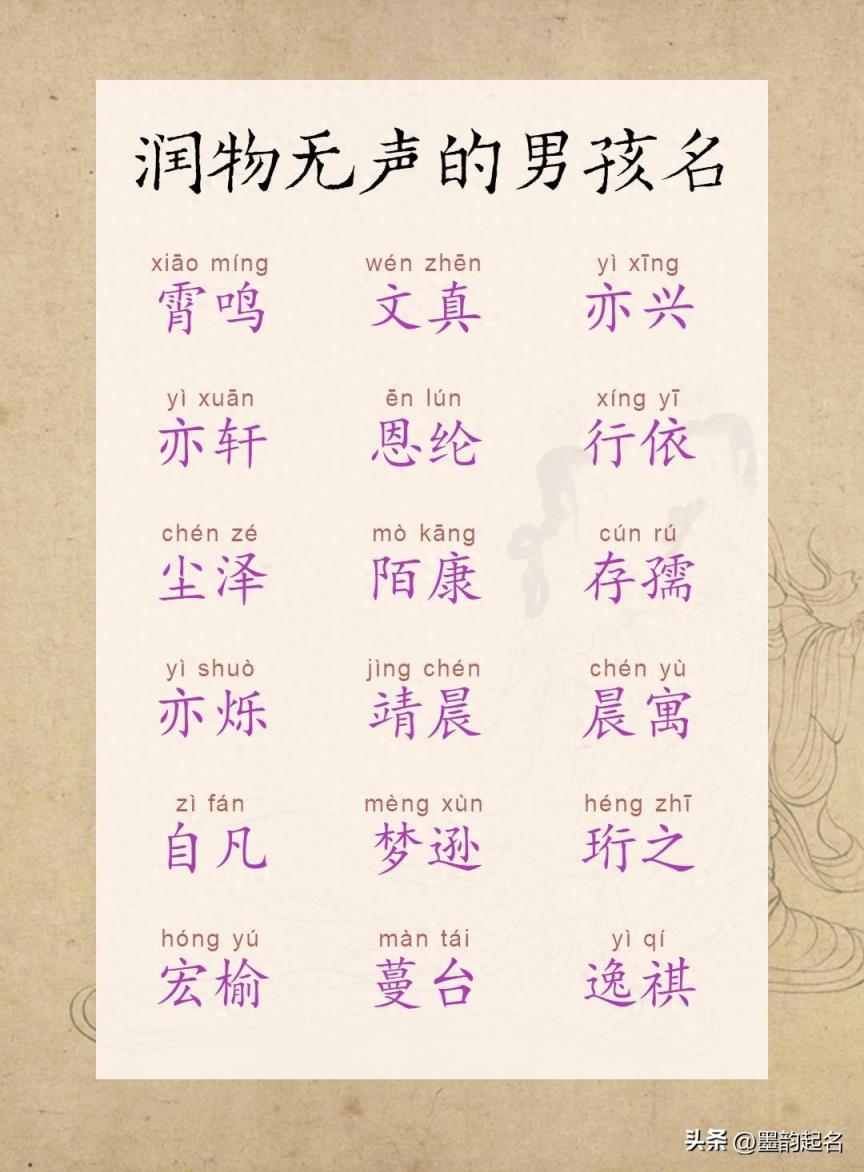 润物无声的男孩名
xiāo míng wén zhēn yì xīng
霄鸣 文真 亦兴
yì xuān ēn lún xíng yī
亦轩 恩纶 行依
chén zé mò kāng cún rú
尘泽 陌康 存孺
yì shuò jìng chén chén yù
亦烁 靖晨 晨寓
zì fán mèng xùn héng zhī
自凡 梦逊 珩之
hóng yú màn tái yì qí
宏榆 蔓台 逸祺
头条 @墨韵起名